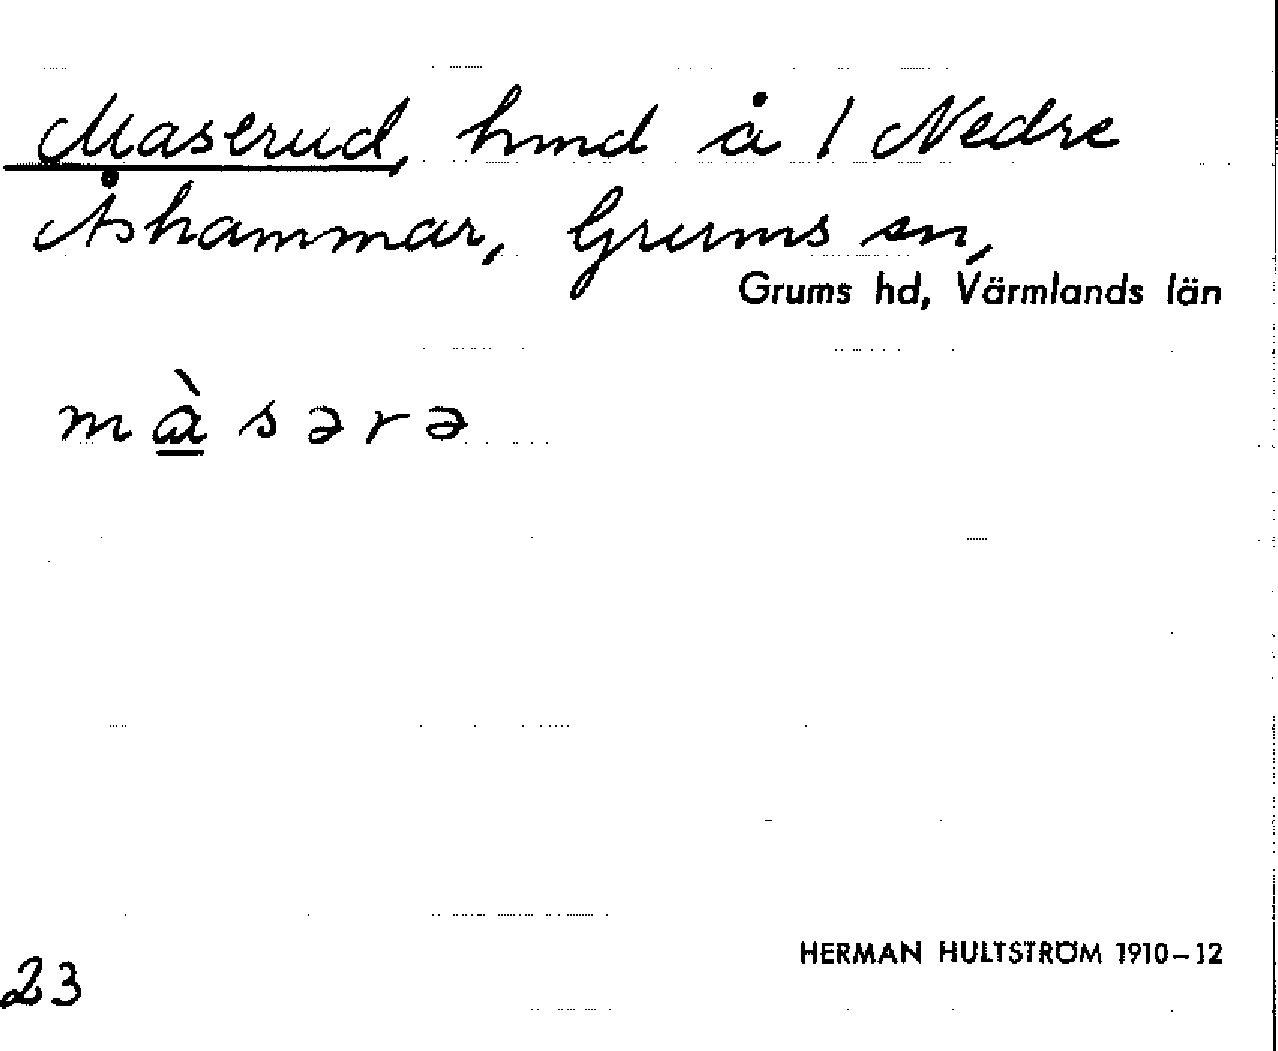 Maserud, hmd å 1 Nedre
Åshammar, Grums sn,
Grums hd, Värmlands län
màsərə
HERMAN HULTSTRÖM 1910–12
23